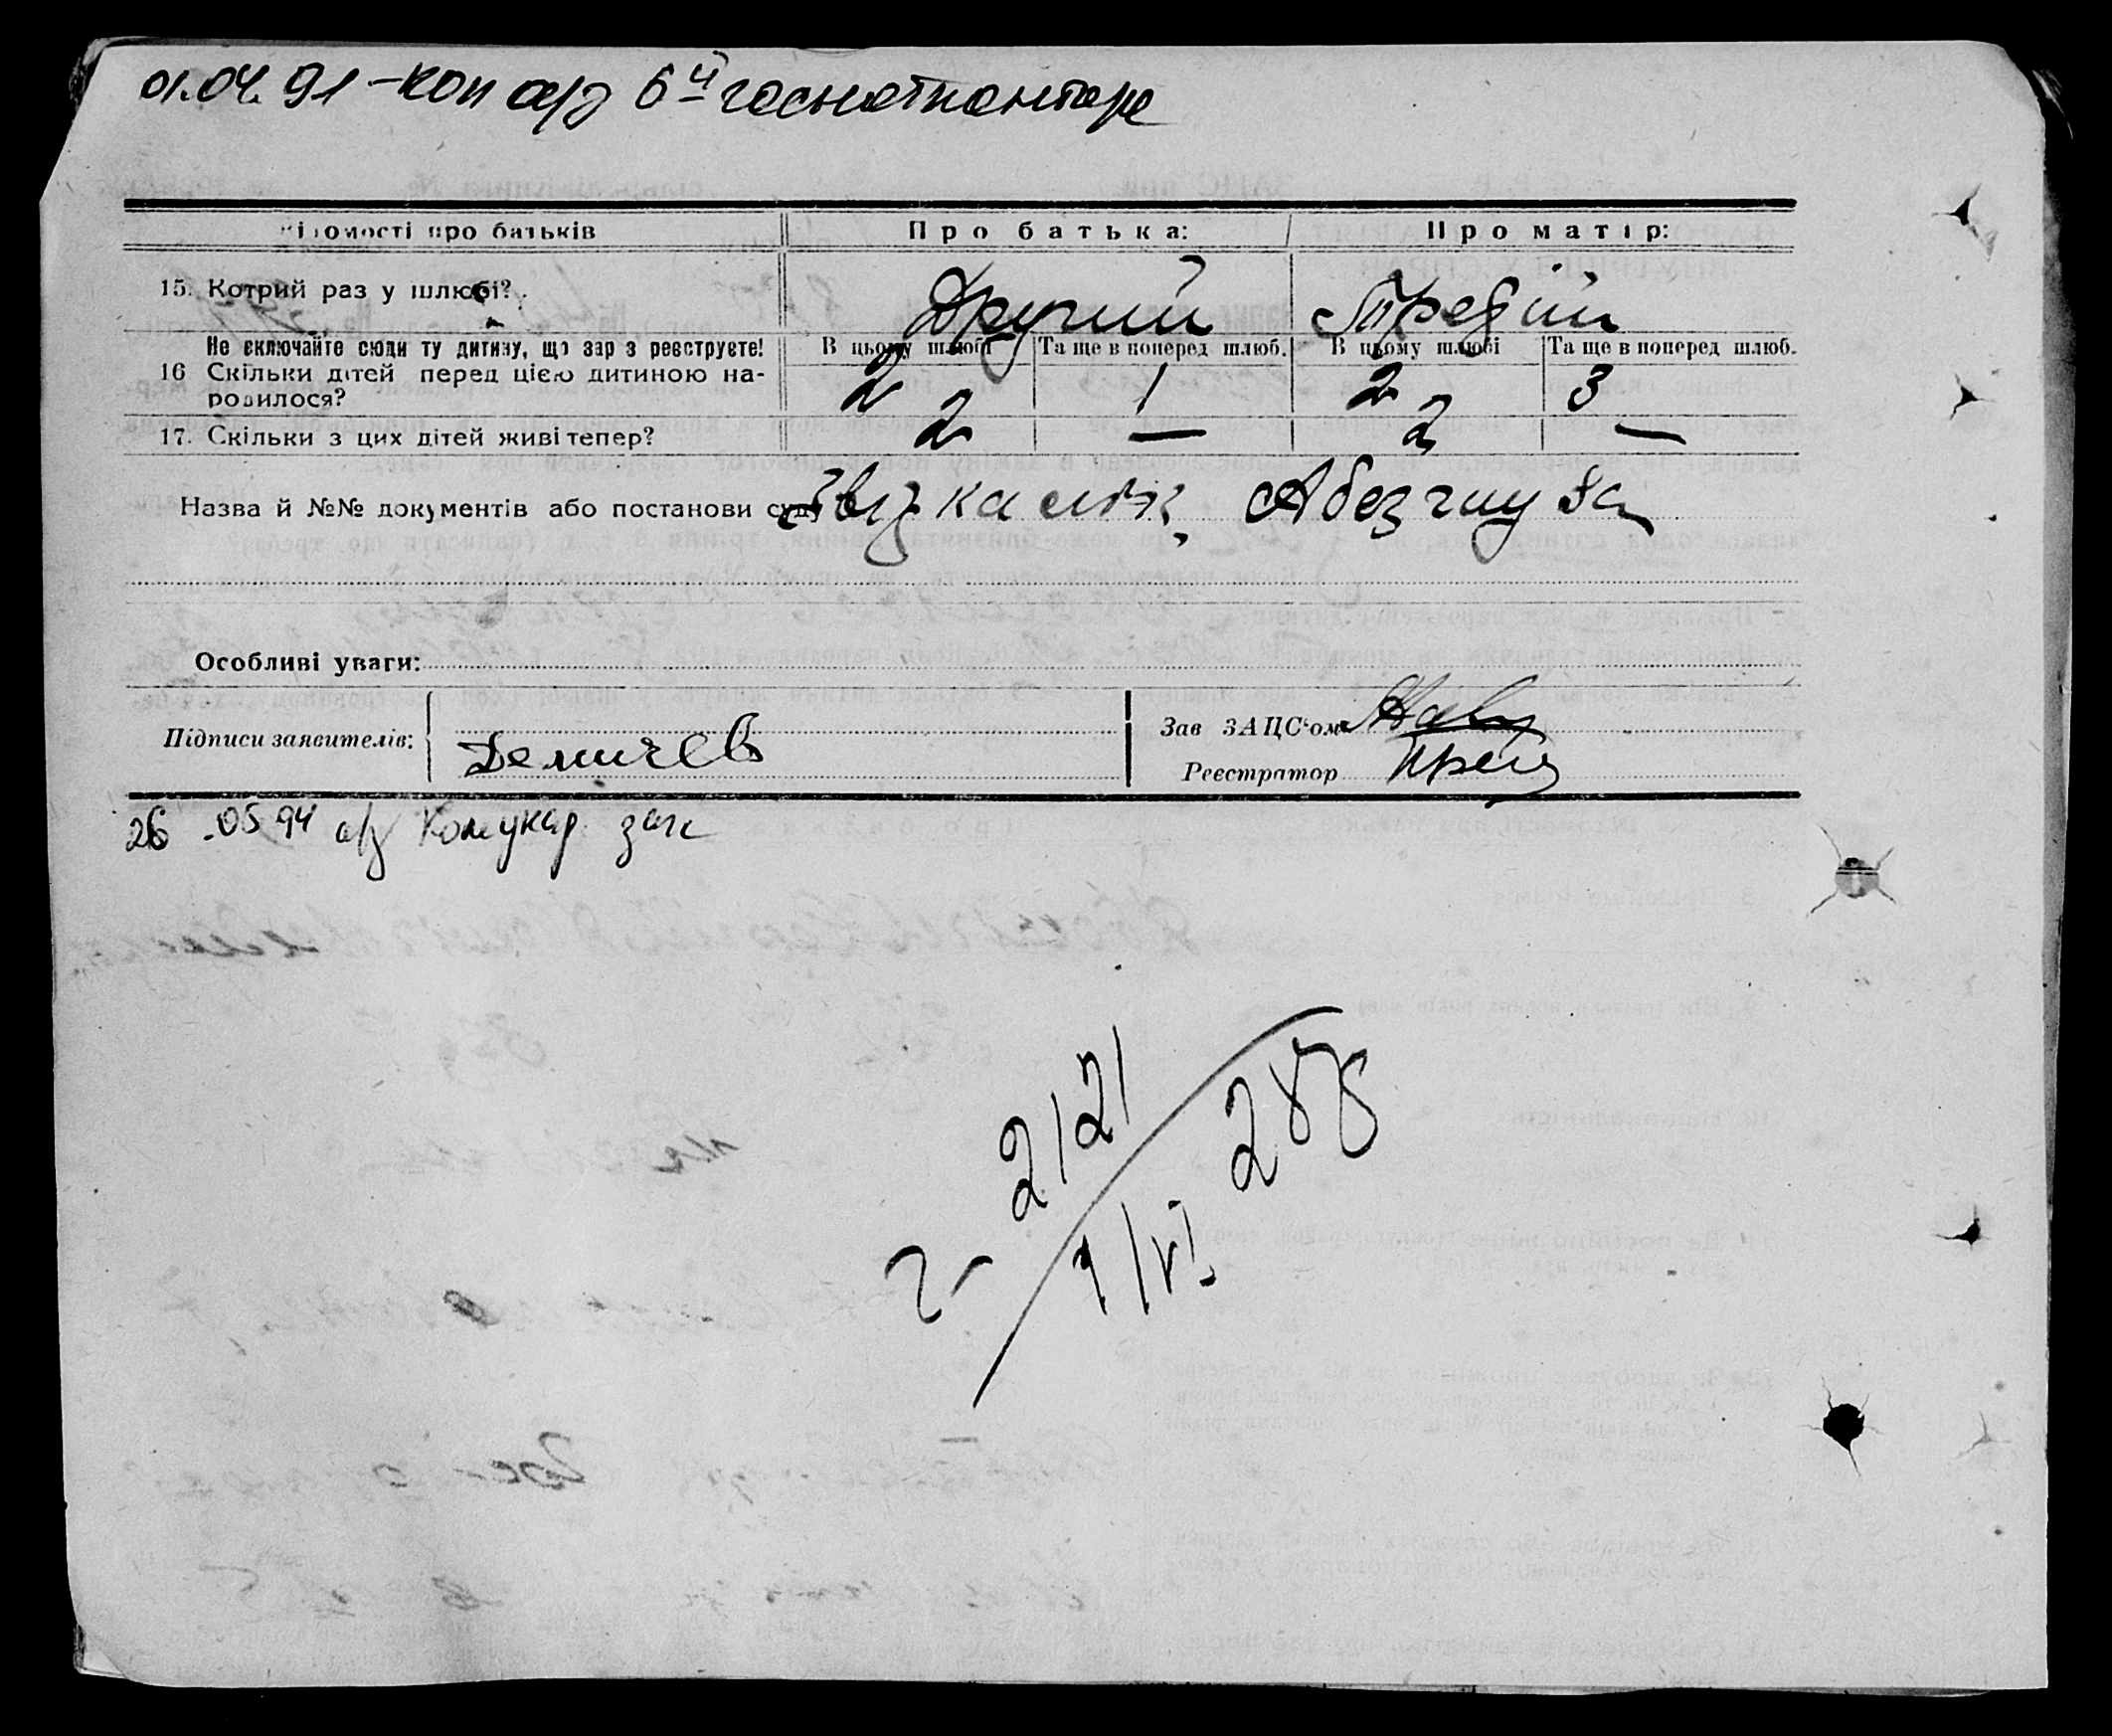 01.04.91 - коп а/з 6й госнотконторе
Відомості про батьків Про батька: Про матір:
15. Котрий раз у шлюбі? Другий Третій
Не включайте сюди ту дитину, що зар з реєструєте! В цьому шлюбі Та ще в поперед шлюб. В цьому шлюбі Та ще в поперед шлюб.
16 Скільки дітей перед цією дитиною на-
родилося? 2 1 2 3
17. Скільки з цих дітей живі тепер? 2 — 2 —
Назва й №№ документів або постанови суду
Особливі уваги:
Підписи заявителів: Демичев
Зав ЗАЦС'ом
Реєстратор
26.05.94 а/з загс
2121
288
1/VI